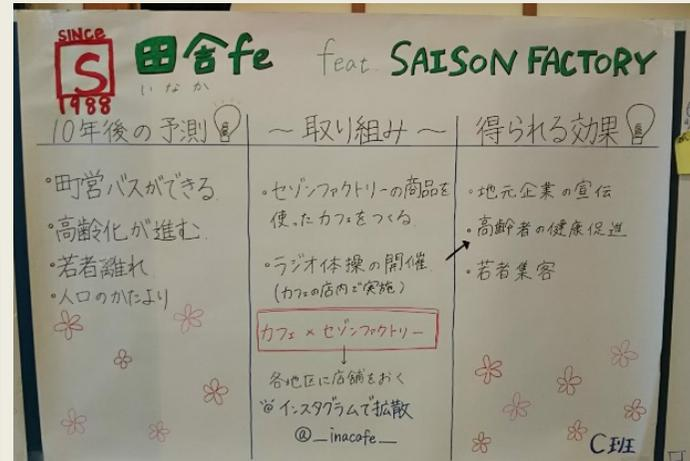 SINCE
S
1988
田舎fe feat. SAISON FACTORY
いなか
10年後の予測
・町営バスができる
・高齢化が進む
・若者離れ
・人口のかたより
〜取り組み〜
・セゾンファクトリーの商品を
使ったカフェをつくる
・ラジオ体操の開催
(カフェの店内で実施)
カフェ×セゾンファクトリー
各地区に店舗をおく
インスタグラムで拡散
@__inacafe__
得られる効果
・地元企業の宣伝
・高齢者の健康促進
・若者集客
C班